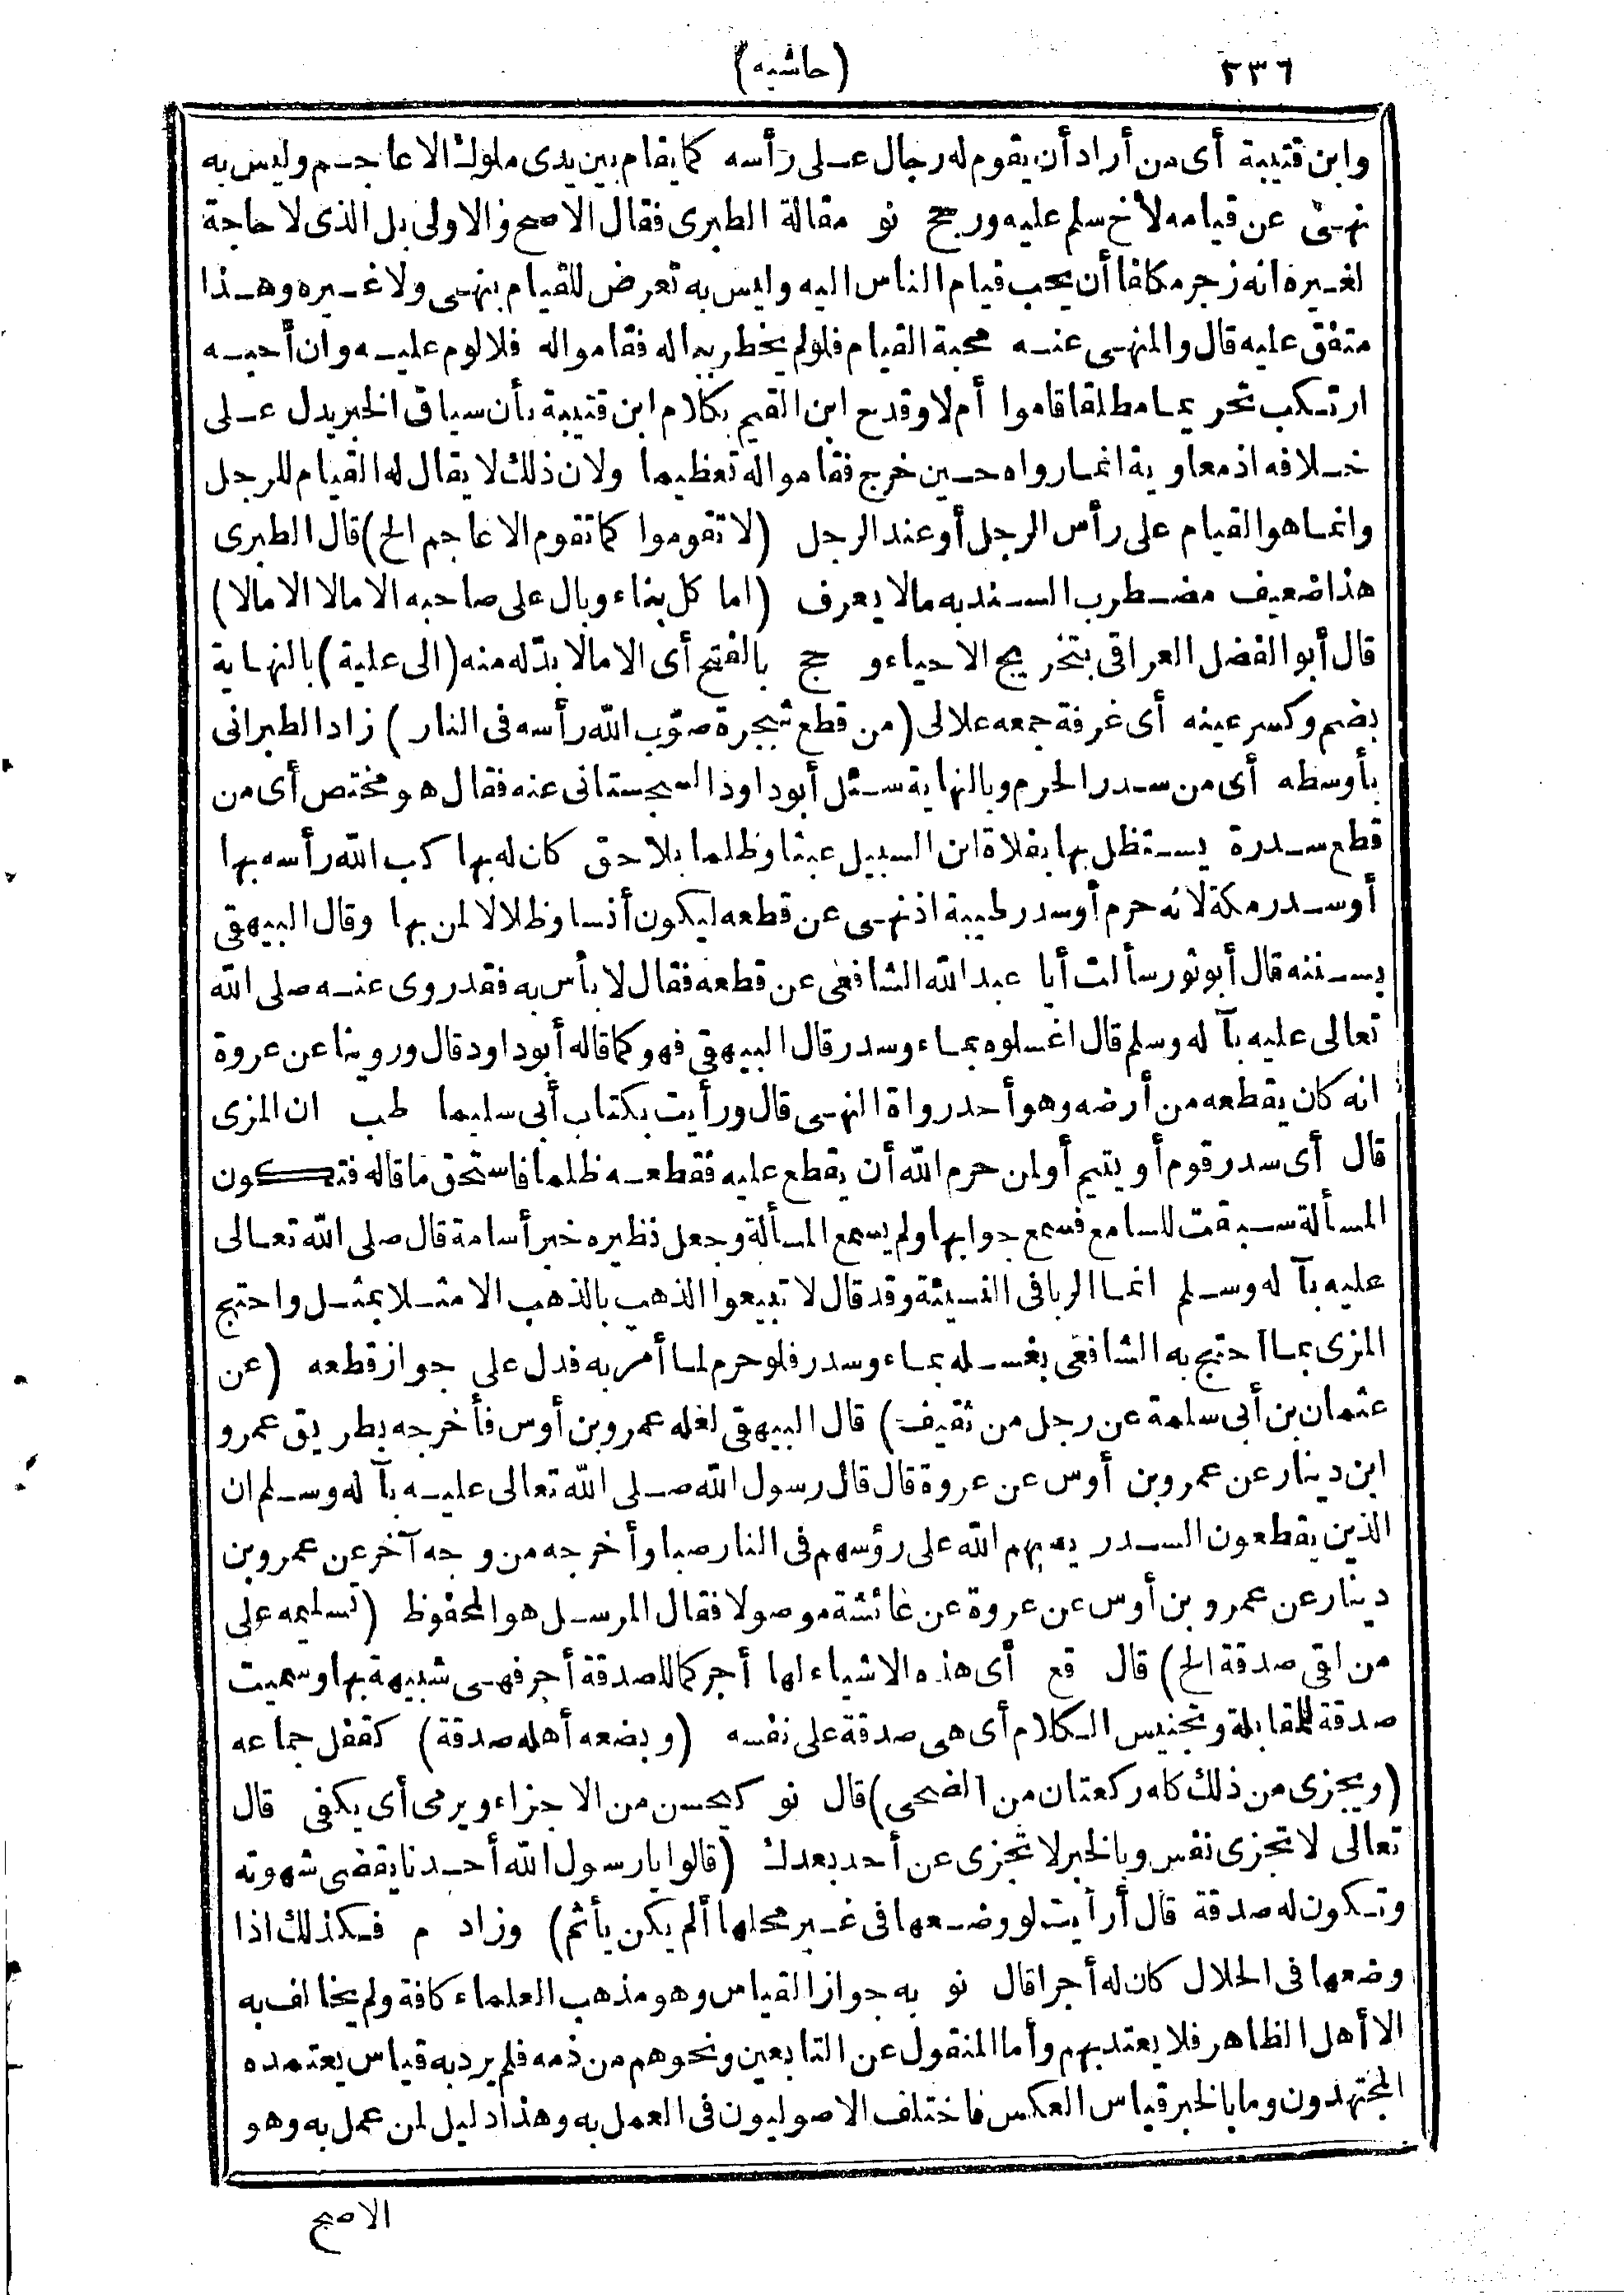 ٢٣٦
(حاشيه)
وابن قتيبة أى من أراد أن يقوم له رجال على رأسه كما يقام بين يدى ملوك الاعاجم وليس به
نهى عن قيامه لأخ سلم عليه ورجح نو مقالة الطبرى فقال الاصح والاولى بل الذى لا حاجة
لغيره انه زجر مكلفا أن يحب قيام الناس اليه وليس به تعرض للقيام بنهى ولا غيره وهذا
متفق عليه قال والمنهى عنه محبة القيام فلو لم يخطر بباله فقاموا له فلا لوم عليه وان أحبه
ارتكب تحريما مطلقا قاموا أم لا وقدح ابن القيم بكلام ابن قتيبة بأن سياق الخبر يدل على
خلافه اذ معاوية انما رواه حين خرج فقاموا له تعظيما ولان ذلك لا يقال له القيام للرجل
وانما هو القيام على رأس الرجل أو عند الرجل (لا تقوموا كما تقوم الاعاجم الخ) قال الطبرى
هذا ضعيف مضطرب السند به ما لا يعرف (اما كل بناء وبال على صاحبه الا مالا الا مالا)
قال أبو الفضل العراقى بتخريج الاحياء و حج بالفتح أى الا ما لا بدّ له منه (الى علية) بالنهاية
بضم وكسر عينه أى غرفة جمعه علالى (من قطع شجرة صوّب الله رأسه فى النار) زاد الطبرانى
بأوسطه أى من سدر الحرم وبالنهاية سئل أبو داود السجستانى عنه فقال هو مختص أى من
قطع سدرة يستظل بها بفلاة ابن السبيل عبثا وظلما بلا حق كان له بها كب الله رأسه بها
أو سدر مكة لانه حرم أو سدر طيبة اذ نهى عن قطعه ليكون أنسا وظلالا لمن بها وقال البيهقى
بسننه قال أبو ثور سألت أبا عبد الله الشافعى عن قطعه فقال لا بأس به فقد روى عنه صلى الله
تعالى عليه بآ له وسلم قال اغسلوه بماء وسدر قال البيهقى فهو كما قاله أبو داود قال وروينا عن عروة
انه كان يقطعه من أرضه وهو أحد رواة النهى قال ورأيت بكتاب أبى سليما طب ان المزى
قال أى سدر قوم أو يتيم أو لمن حرم الله أن يقطع عليه فقطعه ظلما فاستحق ما قاله فتكون
المسألة سبقت للسامع فسمع جوابها ولم يسمع المسألة وجعل نظيره خبر أسامة قال صلى الله تعالى
عليه بآ له وسلم انما الربا فى النسيئة وقد قال لا تبيعوا الذهب بالذهب الا مثلا بمثل واحتج
المزى بما احتج به الشافعى بغسله بماء وسدر فلو حرم لما أمر به فدل على جواز قطعه (عن
عثمان بن أبى سلمة عن رجل من ثقيف) قال البيهقى لعله عمرو بن أوس فأخرجه بطريق عمرو
ابن دينار عن عمرو بن أوس عن عروة قال قال رسول الله صلى الله تعالى عليه بآ له وسلم ان
الذين يقطعون السدر يصبهم الله على رؤسهم فى النار صبا وأخرجه من وجه آخر عن عمرو بن
دينار عن عمرو بن أوس عن عروة عن عائشة موصولا فقال المرسل هو المحفوظ (تسليمه على
من لقى صدقة الخ) قال قع أى هذه الاشياء لها أجر كما للصدقة أجر فهى شبيهة بها وسميت
صدقة للمقابلة وتجنيس الكلام أى هى صدقة على نفسه (وبضعه أهله صدقة) كقفل جماعه
(ويجزى من ذلك كله ركعتان من الضحى) قال نو كيحسن من الاجزاء ويرمى أى يكفى قال
تعالى لا تجزى نفس وبالخبر لا تجزى عن أحد بعدك (قالوا يا رسول الله أحدنا يقضى شهوته
وتكون له صدقة قال أرأيت لو وضعها فى غير محلها ألم يكن يأثم) وزاد م فكذلك اذا
وضعها فى الحلال كان له أجرا قال نو به جواز القياس وهو مذهب العلماء كافة ولم يخالف به
الا أهل الظاهر فلا يعتد بهم وأما المنقول عن التابعين ونحوهم من ذمه فلم يرد به قياس يعتمده
المجتهدون وما بالخبر قياس العكس فاختلف الاصوليون فى العمل به وهذا دليل لمن عمل به وهو
الاصح